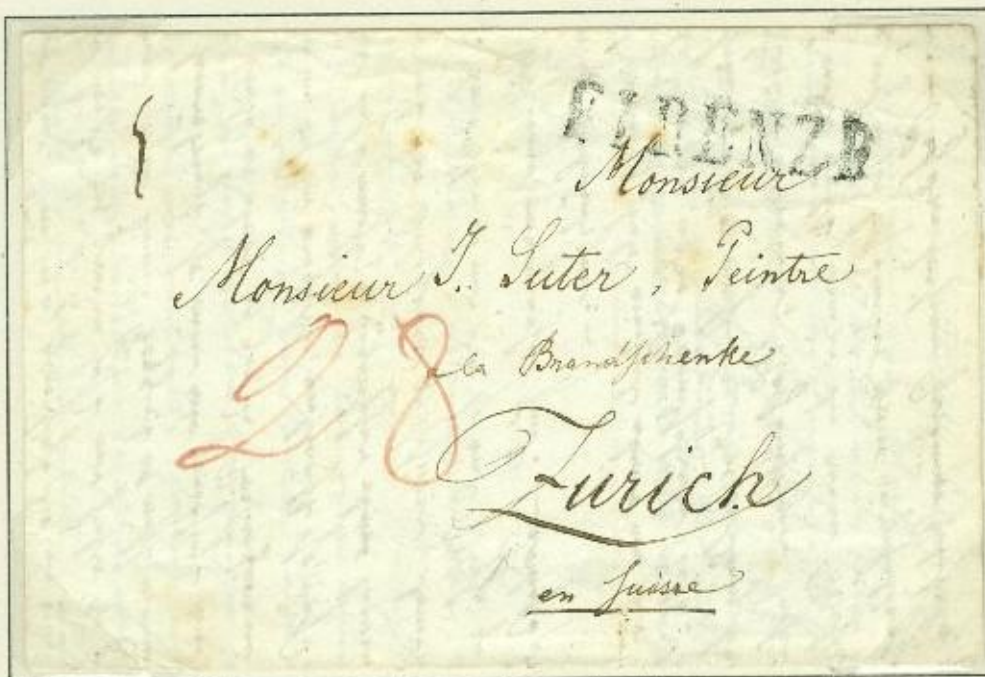 FIRENZE
Monsieur
Monsieur J. Suter, Peintre
la Brandschenke
28
Zurich
en Suisse